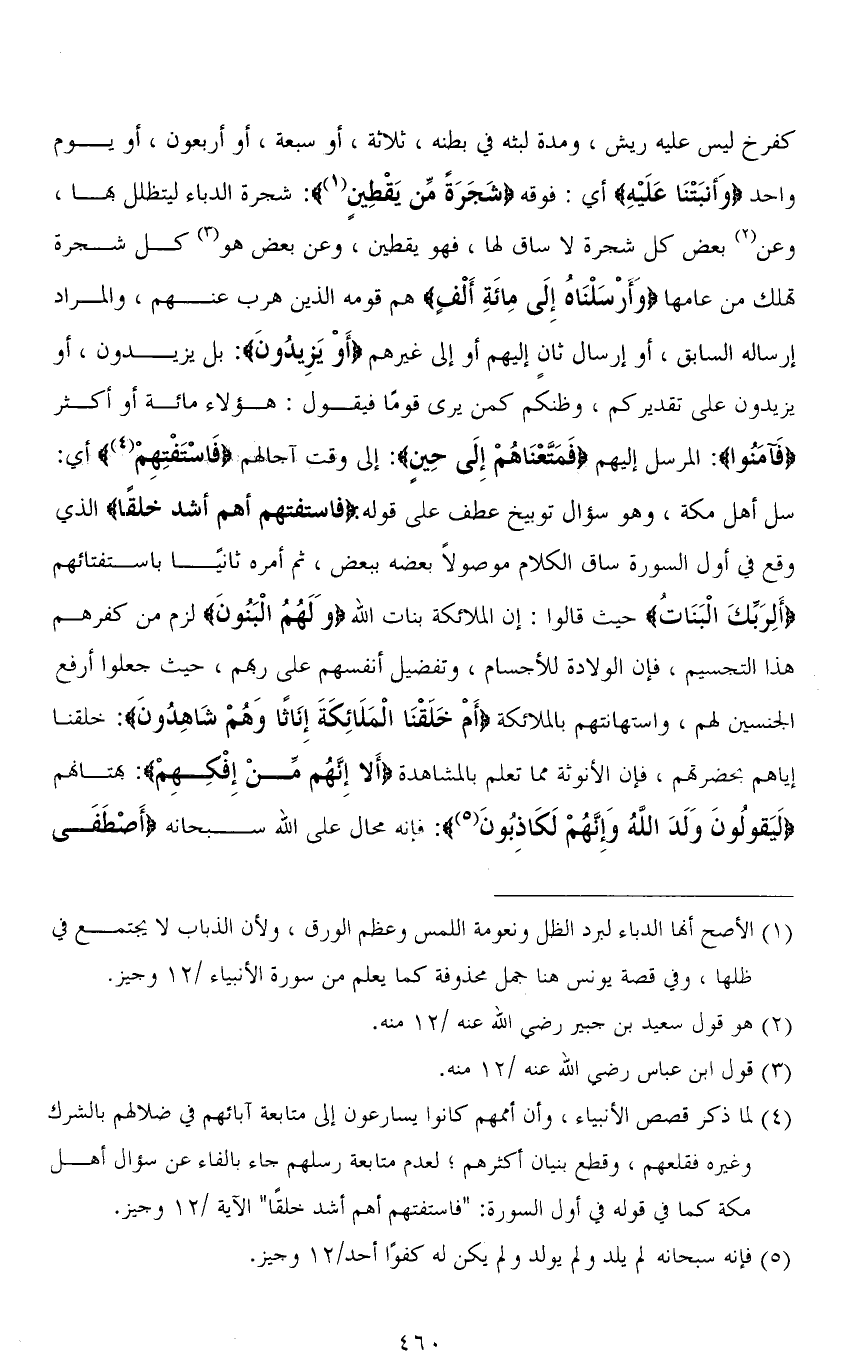 كفرخ ليس عليه ريش ، ومدة لبثه في بطنه ، ثلاثة ، أو سبعة ، أو أربعون ، أو يـــوم
واحد ﴿وَأَنبَتْنَا عَلَيْهِ﴾ أي : فوقه ﴿شَجَرَةً مِّن يَقْطِينٍ(١)﴾: شجرة الدباء ليتظلل بهـــا ،
وعن(٢) بعض كل شجرة لا ساق لها ، فهو يقطين ، وعن بعض هو(٣) كـــل شـــجرة
تهلك من عامها ﴿وَأَرْسَلْنَاهُ إِلَى مِائَةِ أَلْفٍ﴾ هم قومه الذين هرب عنـــهم ، والمـــراد
إرساله السابق ، أو إرسال ثانٍ إليهم أو إلى غيرهم ﴿أَوْ يَزِيدُونَ﴾: بل يزيـــدون ، أو
يزيدون على تقديركم ، وظنكم كمن يرى قومًا فيقـــول : هـــؤلاء مائـــة أو أكـــثر
﴿فَآمَنُوا﴾: المرسل إليهم ﴿فَمَتَّعْنَاهُمْ إِلَى حِينٍ﴾: إلى وقت آجالهم ﴿فَاسْتَفْتِهِمْ(٤)﴾ أي:
سل أهل مكة ، وهو سؤال توبيخ عطف على قوله:﴿فاستفتهم أهم أشد خلقًا﴾ الذي
وقع في أول السورة ساق الكلام موصولاً بعضه ببعض ، ثم أمره ثانيًـــا باســـتفتائهم
﴿أَلِرَبِّكَ الْبَنَاتُ﴾ حيث قالوا : إن الملائكة بنات الله ﴿وَلَهُمُ الْبَنُونَ﴾ لزم من كفرهـــم
هذا التجسيم ، فإن الولادة للأجسام ، وتفضيل أنفسهم على ربهم ، حيث جعلوا أرفع
الجنسين لهم ، واستهانتهم بالملائكة ﴿أَمْ خَلَقْنَا الْمَلَائِكَةَ إِنَاثًا وَهُمْ شَاهِدُونَ﴾: خلقنـا
إياهم بحضرتهم ، فإن الأنوثة مما تعلم بالمشاهدة ﴿أَلا إِنَّهُم مِّـــنْ إِفْكِـــهِمْ﴾: بهتـــانهم
﴿لَيَقُولُونَ وَلَدَ اللَّهُ وَإِنَّهُمْ لَكَاذِبُونَ(٥)﴾: فإنه محال على الله ســـبحانه ﴿أَصْطَفَـــى
(١) الأصح أنها الدباء لبرد الظل ونعومة اللمس وعظم الورق ، ولأن الذباب لا يجتمـــع في
ظلها ، وفي قصة يونس هنا جمل محذوفة كما يعلم من سورة الأنبياء /١٢ وجيز.
(٢) هو قول سعيد بن جبير رضي الله عنه /١٢ منه.
(٣) قول ابن عباس رضي الله عنه /١٢ منه.
(٤) لما ذكر قصص الأنبياء ، وأن أممهم كانوا يسارعون إلى متابعة آبائهم في ضلالهم بالشرك
وغيره فقلعهم ، وقطع بنيان أكثرهم ؛ لعدم متابعة رسلهم جاء بالفاء عن سؤال أهـــل
مكة كما في قوله في أول السورة: "فاستفتهم أهم أشد خلقًا" الآية /١٢ وجيز.
(٥) فإنه سبحانه لم يلد ولم يولد ولم يكن له كفوًا أحد/١٢ وجيز.
٤٦٠